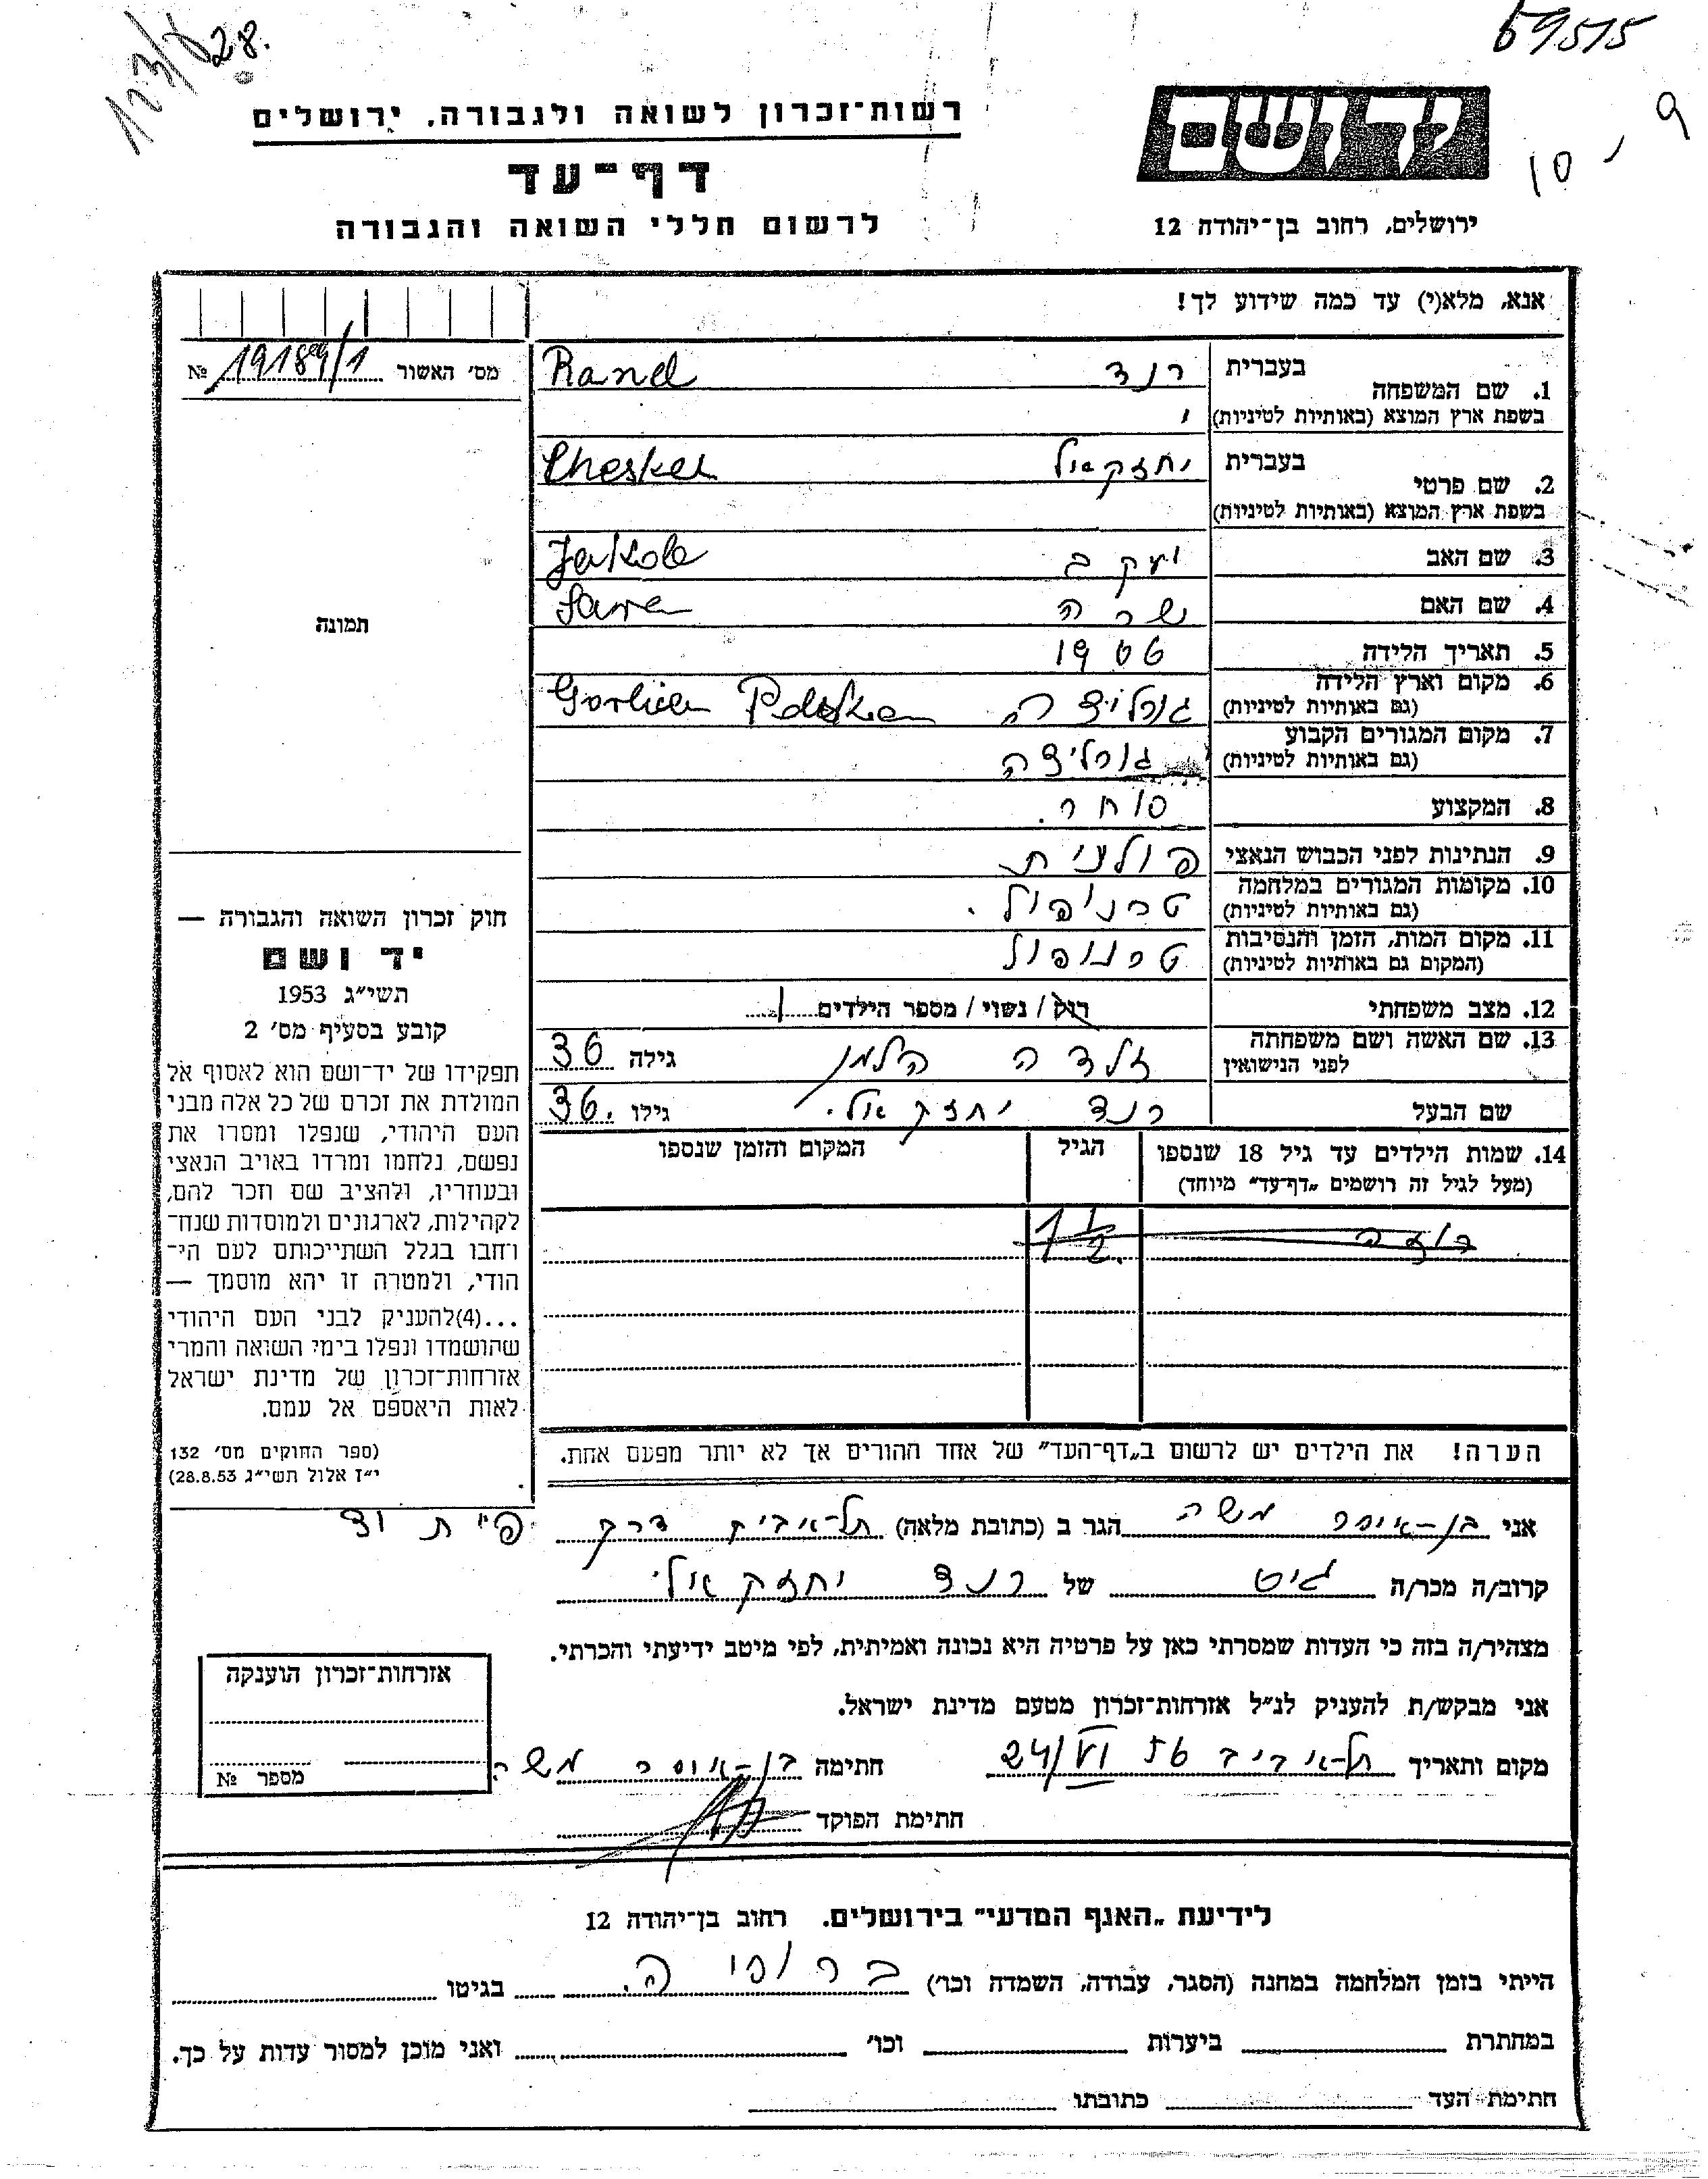 123/8 28.
69515
רשות־זכרון לשואה ולגבורה, ירושלים
ידושם
9
10
דף־עד
לרשום חללי השואה והגבורה
ירושלים, רחוב בן־יהודה 12
אנא, מלא(י) עד כמה שידוע לך!
מס׳ האשור 19189/1 №
1. שם המשפחה בעברית רנד Rand
בשפת ארץ המוצא (באותיות לטיניות)
2. שם פרטי בעברית יחזקאל Cheskel
בשפת ארץ המוצא (באותיות לטיניות)
3. שם האב יעקב Jakob
4. שם האם שרה Sara
תמונה
5. תאריך הלידה 1906
6. מקום וארץ הלידה גורליצה Gorlice Polska
(גם באותיות לטיניות)
7. מקום המגורים הקבוע גורליצה
(גם באותיות לטיניות)
8. המקצוע סוחר.
9. הנתינות לפני הכבוש הנאצי פולנית
10. מקומות המגורים במלחמה טרנופול.
(גם באותיות לטיניות)
11. מקום המות, הזמן והנסיבות טרנופול
(המקום גם באותיות לטיניות)
12. מצב משפחתי רוק / נשוי / מספר הילדים 1
13. שם האשה ושם משפחתה זלדה הלמן גילה 36
לפני הנישואין
שם הבעל רנד יחזקאל. גילו 36.
14. שמות הילדים עד גיל 18 שנספו הגיל המקום והזמן שנספו
(מעל לגיל זה רושמים „דף־עד״ מיוחד)
רוזה 1 1/2
הערה! את הילדים יש לרשום ב„דף־העד״ של אחד ההורים אך לא יותר מפעם אחת.
חוק זכרון השואה והגבורה —
יד ושם
תשי״ג 1953
קובע בסעיף מס׳ 2
תפקידו של יד־ושם הוא לאסוף אל
המולדת את זכרם של כל אלה מבני
העם היהודי, שנפלו ומסרו את
נפשם, נלחמו ומרדו באויב הנאצי
ובעוזריו, ולהציב שם וזכר להם,
לקהילות, לארגונים ולמוסדות שנח־
רבו בגלל השתייכותם לעם הי־
הודי, ולמטרה זו יהא מוסמך —
...(4)להעניק לבני העם היהודי
שהושמדו ונפלו בימי השואה והמרי
אזרחות־זכרון של מדינת ישראל
לאות היאספם אל עמם.
(ספר החוקים מס׳ 132
י״ז אלול תשי״ג 28.8.53)
אני בן־איסר משה הגר ב (כתובת מלאה) תל־אביב דרך פ״ת
קרוב/ה מכר/ה גיס של רנד יחזקאל
מצהיר/ה בזה כי העדות שמסרתי כאן על פרטיה היא נכונה ואמיתית, לפי מיטב ידיעתי והכרתי.
אני מבקש/ת להעניק לנ״ל אזרחות־זכרון מטעם מדינת ישראל.
מקום ותאריך תל־אביב 24/VI 56 חתימה בן־איסר משה
חתימת הפוקד
אזרחות־זכרון הוענקה
מספר №
לידיעת „האגף המדעי״ בירושלים. רחוב בן־יהודה 12
הייתי בזמן המלחמה במחנה (הסגר, עבודה, השמדה וכו׳) ברוסיה. בגיטו
במחתרת ביערות וכו׳ ואני מוכן למסור עדות על כך.
חתימת העד כתובתו